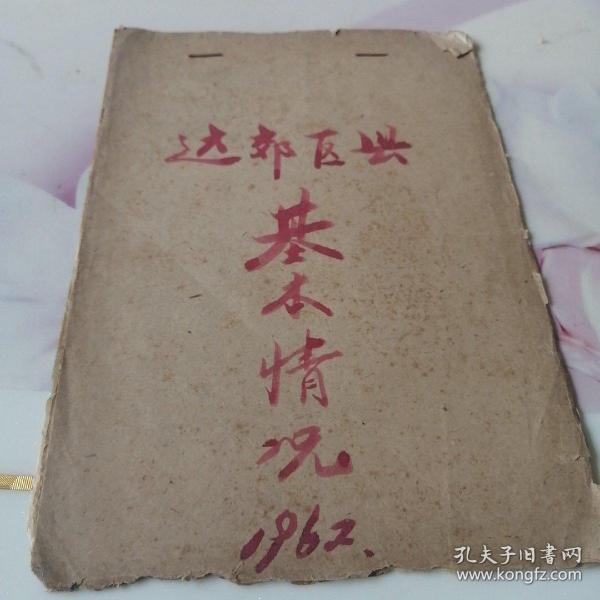 达郊区县
基本情况
1962.
孔夫子旧書网
www.kongfz.com